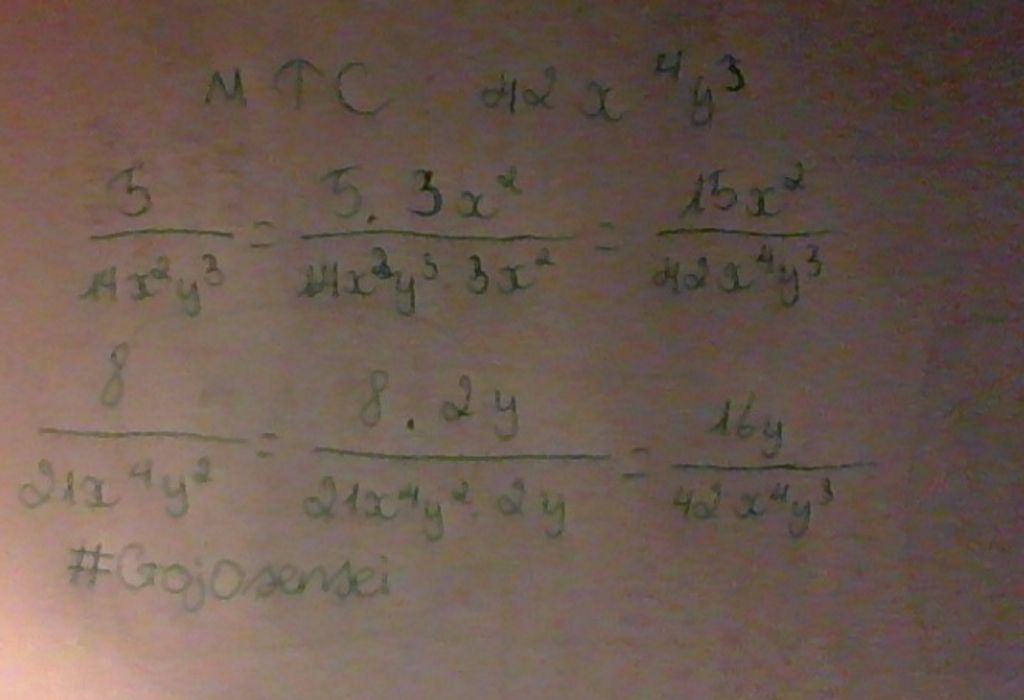 MTC 42x⁴y³
5/14x²y³ = 5.3x²/14x²y³.3x² = 15x²/42x⁴y³
8/21x⁴y² = 8.2y/21x⁴y².2y = 16y/42x⁴y³
#Gojosensei